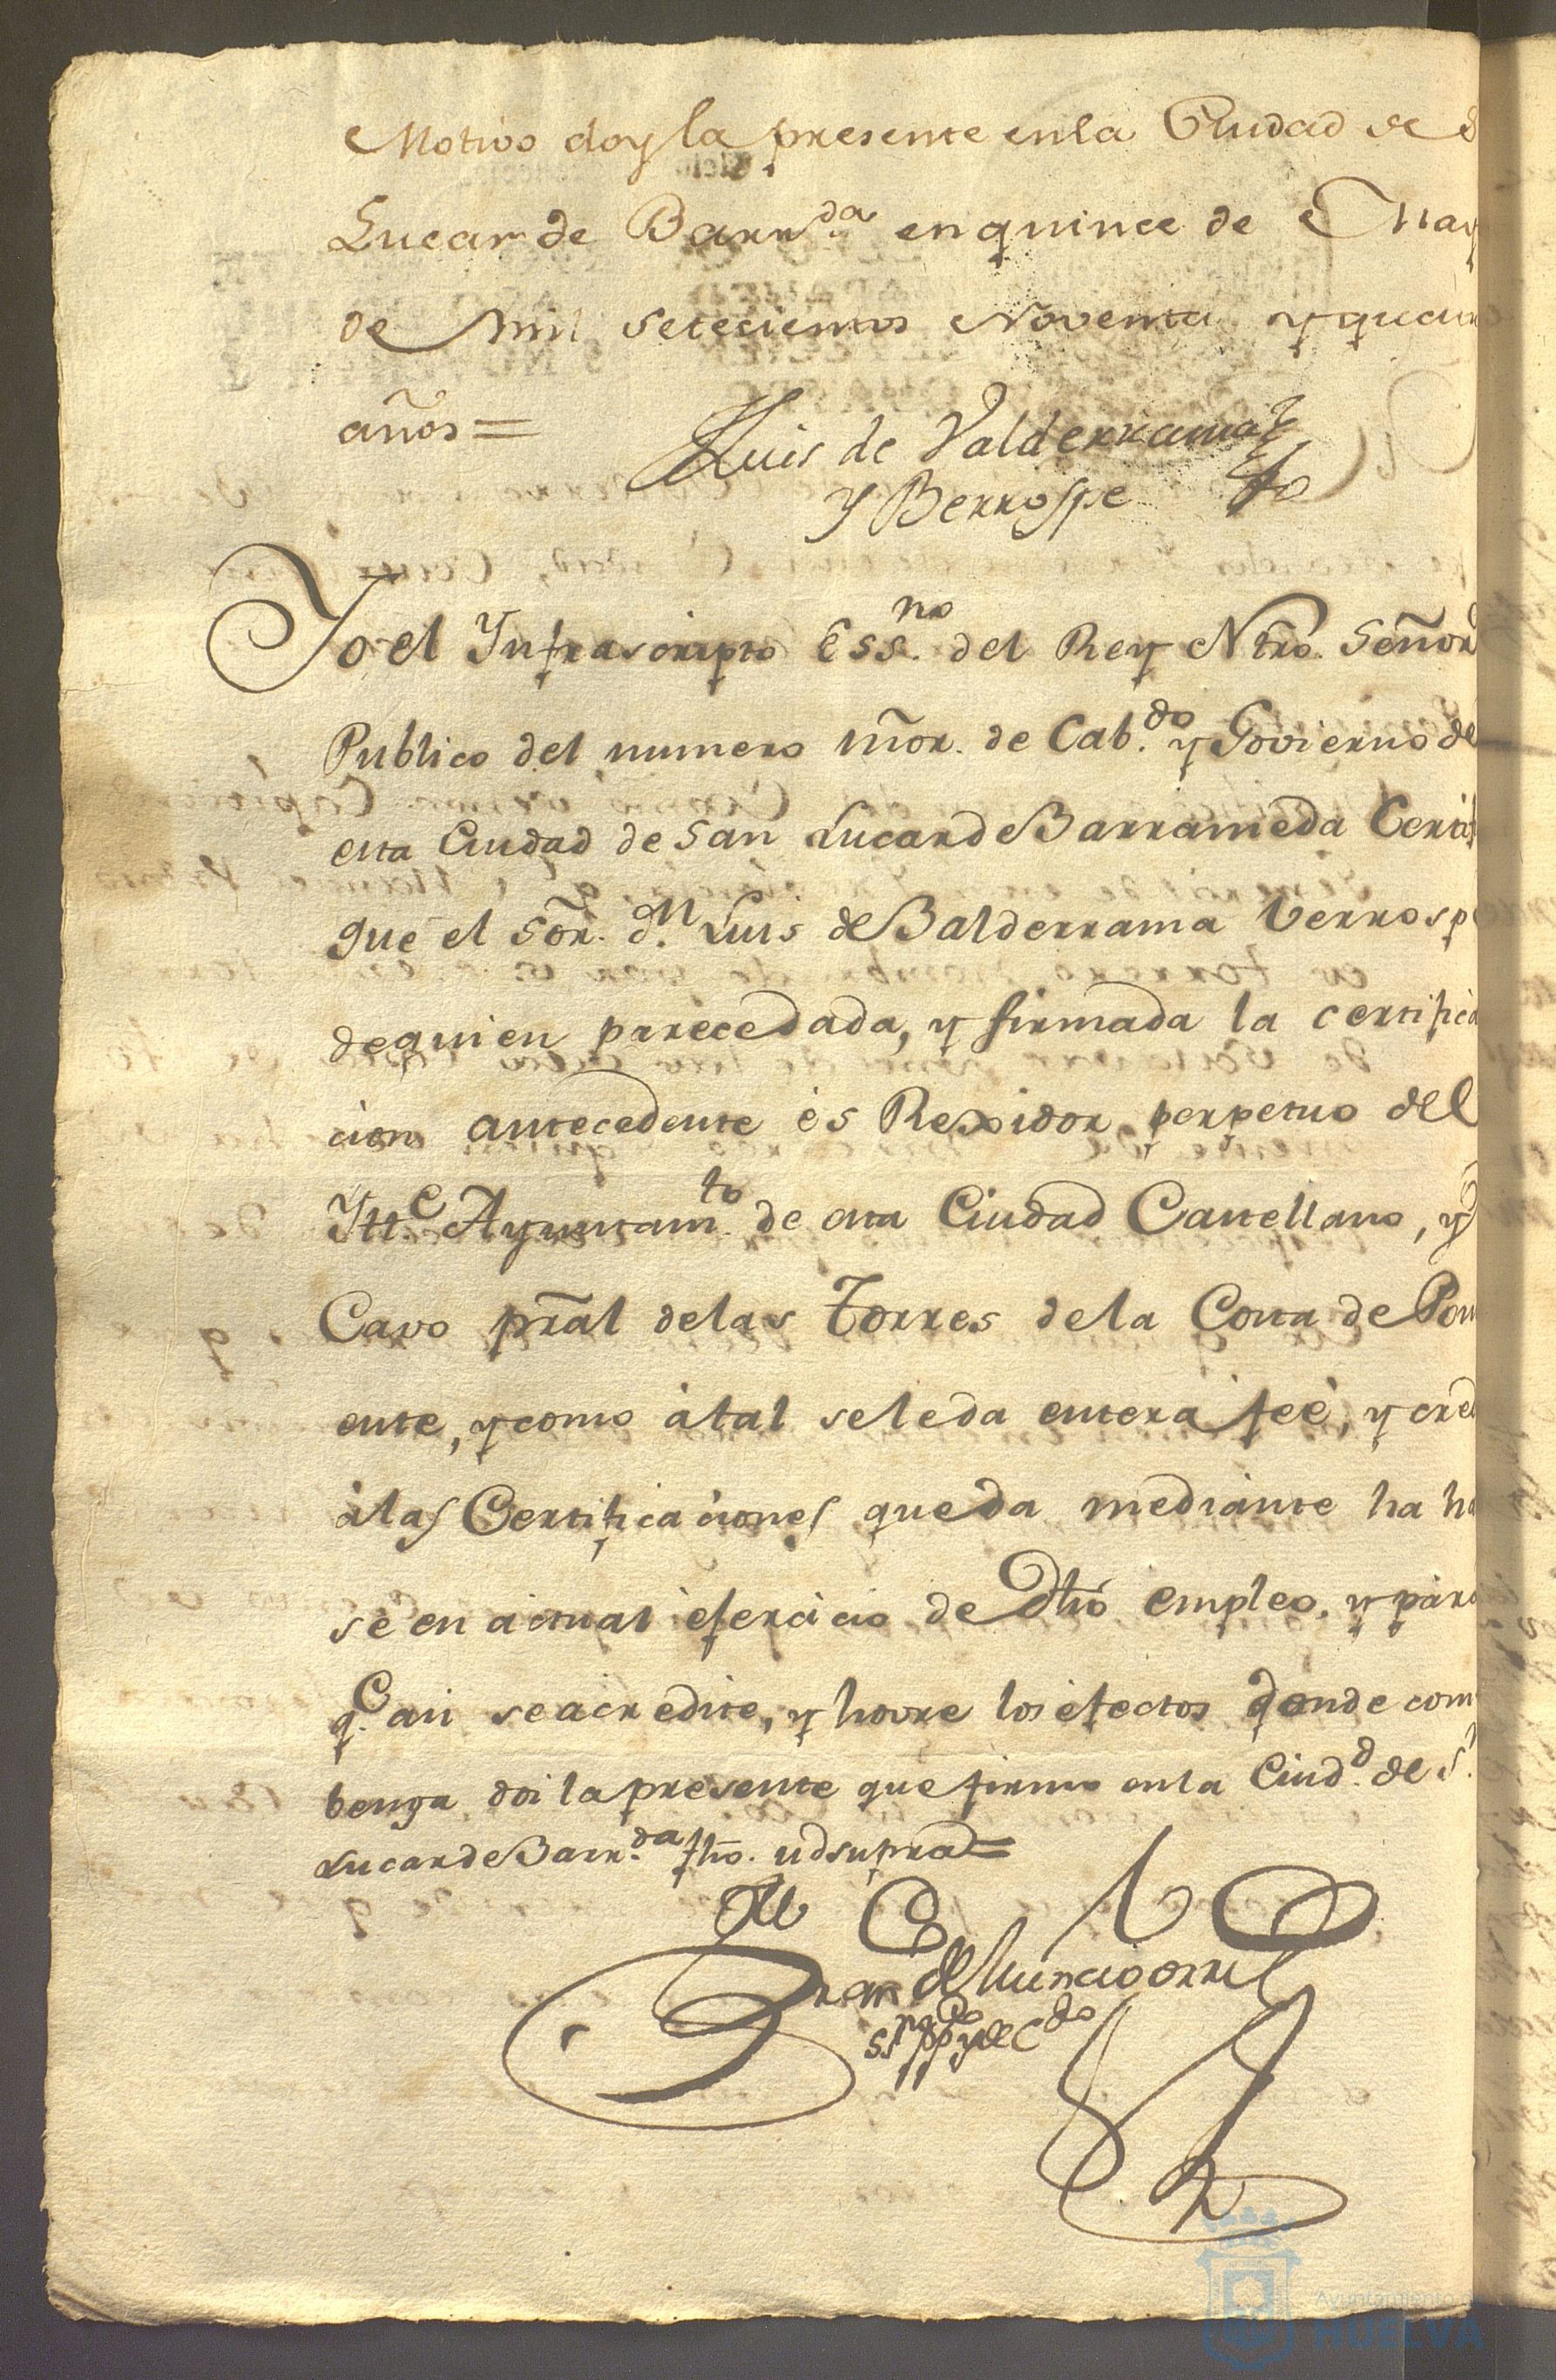 Motivo doy la presente en la Ciudad de S
Lucar de Barr.da en quince de May
de mil setecientos Noventa y quatr
años =
Luis de Valderrama
y Berrospe
Yo el Ynfrascripto Ess.no del Rey Ntro. Señor
Publico del numero mõr. de Cab.do y Govierno de
esta Ciudad de San Lucar de Barrameda Certif
que el Sõr. d.n Luis de Balderrama Verrosp
de quien parece dada, y firmada la certifica
cion antecedente és Rexidor perpetuo del
Ytt.e Ayuntam.to de esta Ciudad Castellano, y
Cavo prãl de las Torres de la Costa de Pon
ente, y como á tal se le da entera feé, y cred
á las Certificaciones que da mediante ha ha
se en áctual éjercicio de dho empleo, y para
q.e asi se acredite, y hovre los éfectos donde com
benga doi la presente que firmo en la Ciud.d de S.n
Lucar de Barr.da fho. ud supra =